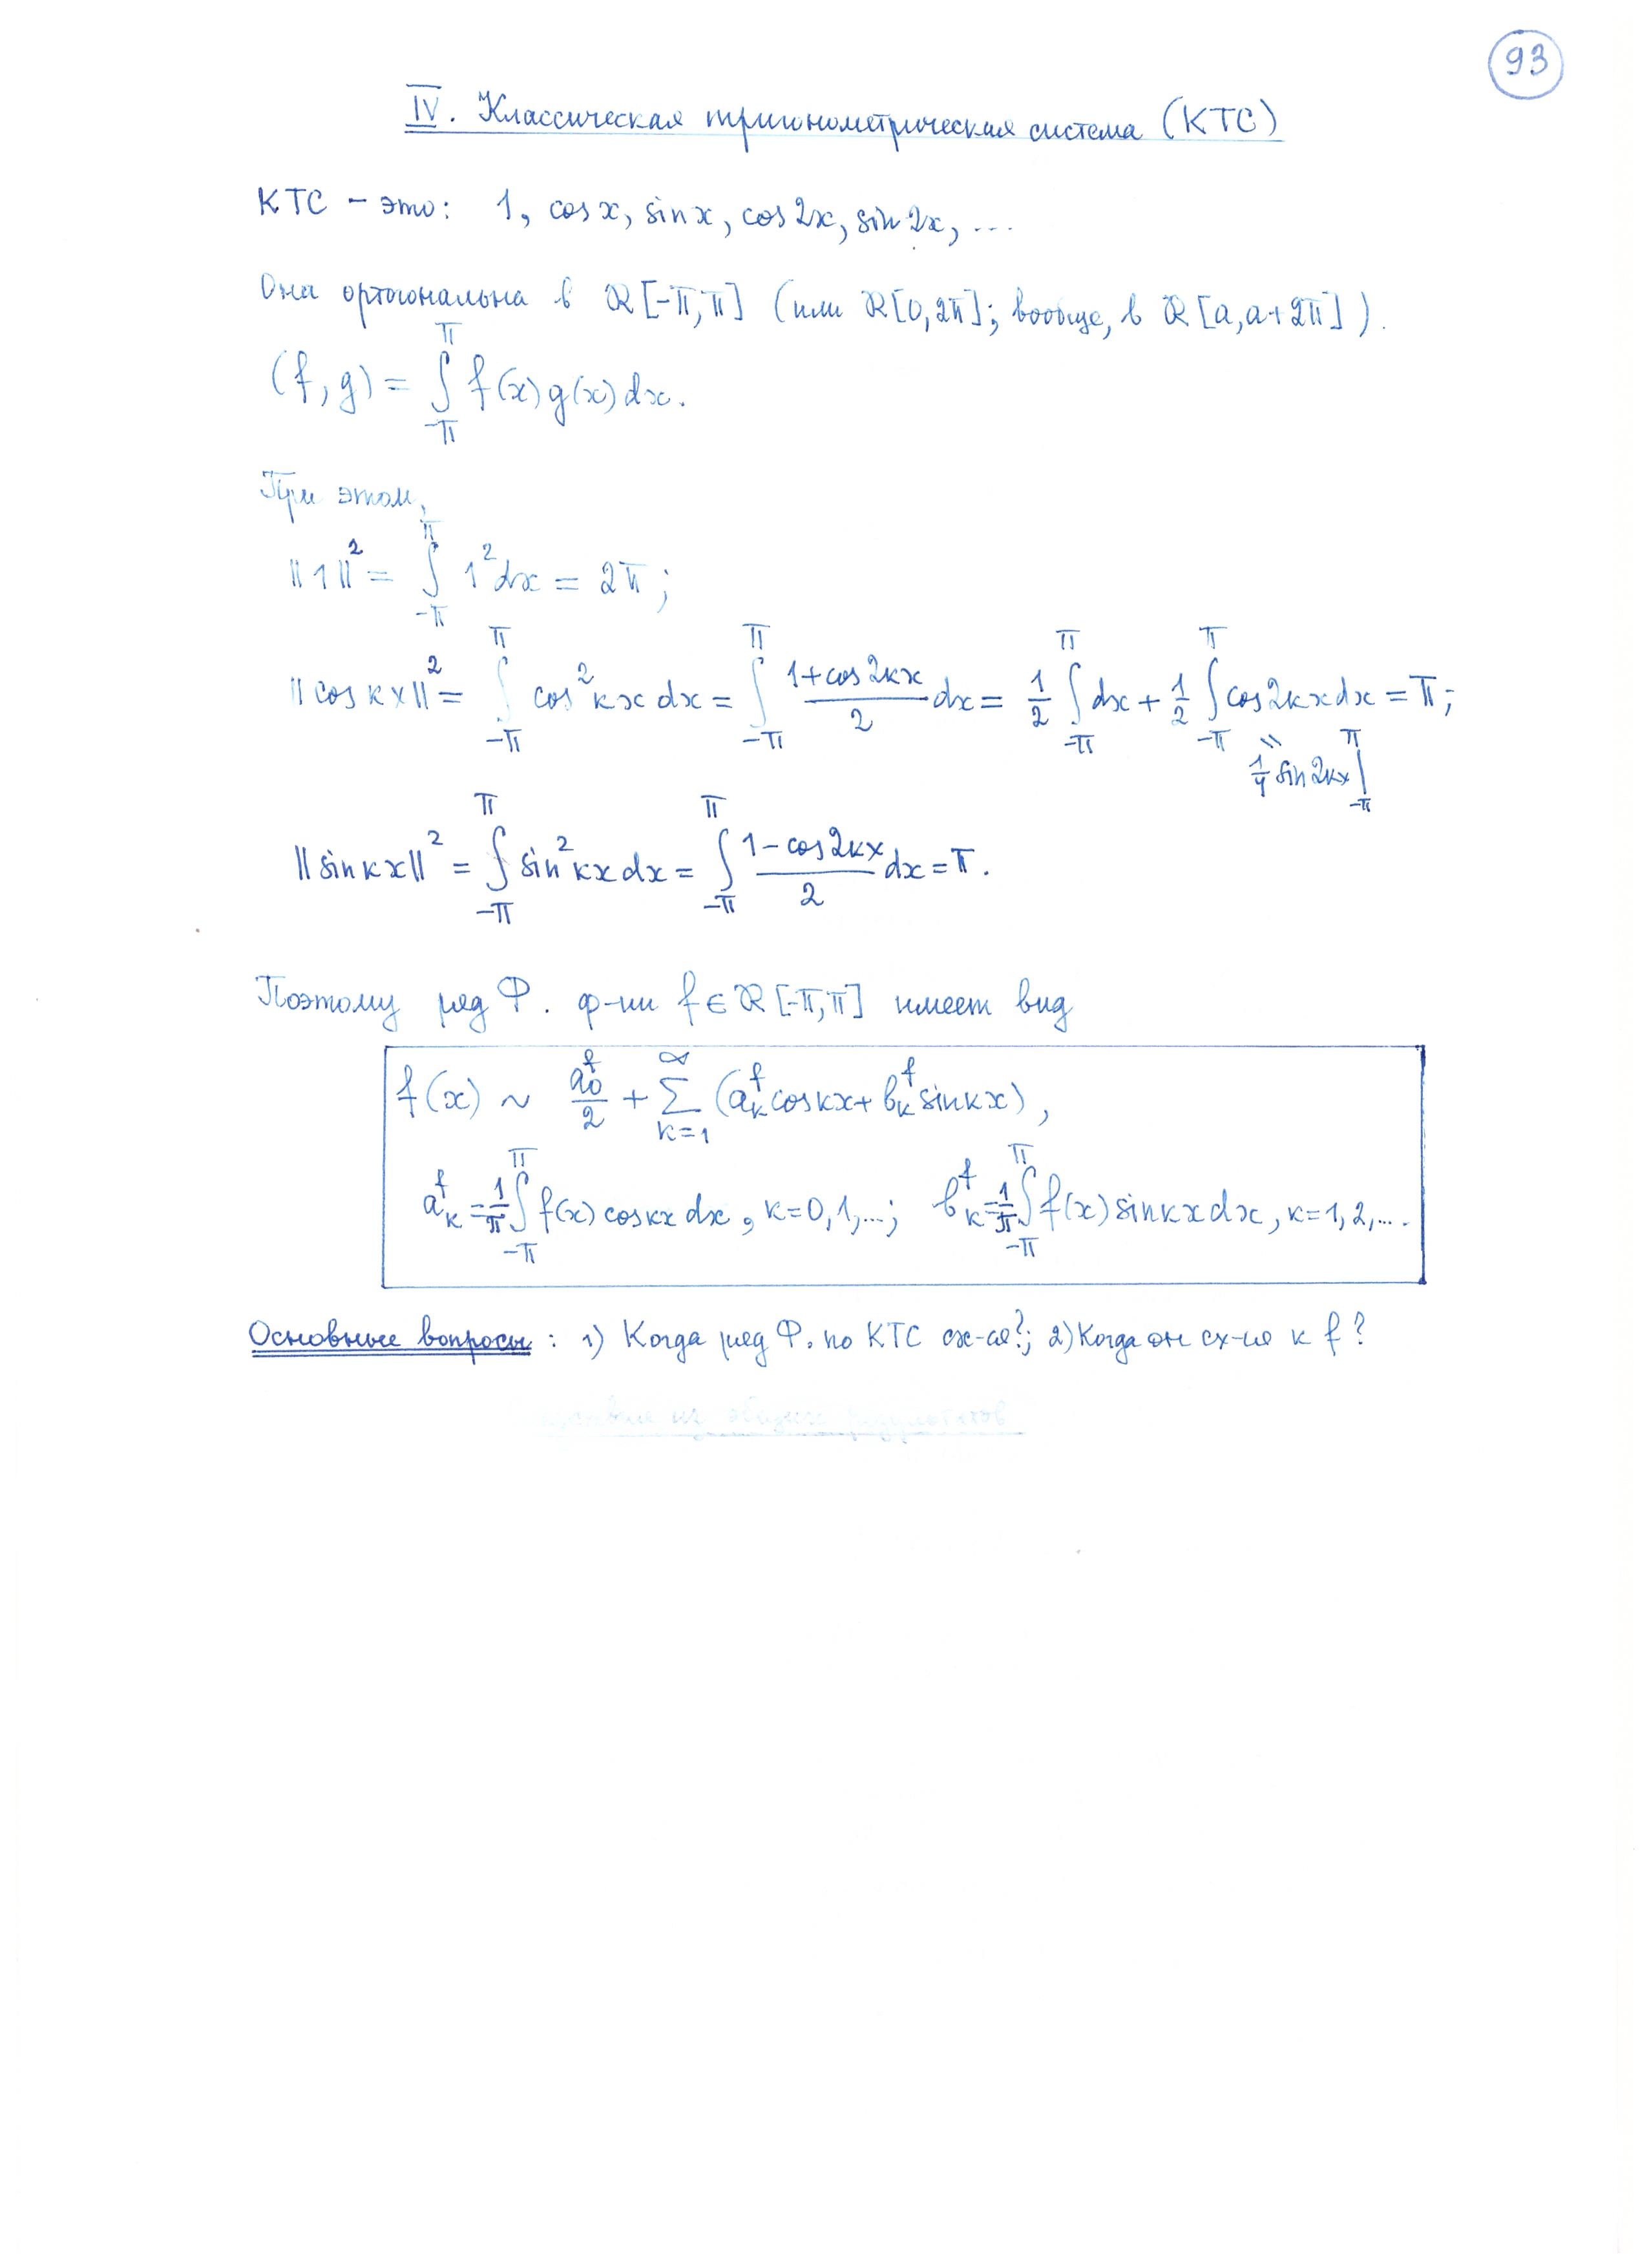 93
IV. Классическая тригонометрическая система (КТС)
КТС – это: 1, cos x, sin x, cos 2x, sin 2x, ...
Она ортогональна в ℛ[-π, π] (или ℛ[0, 2π]; вообще, в ℛ[a, a+2π]).
(f, g) = ∫_{-π}^{π} f(x) g(x) dx.
При этом,
‖1‖² = ∫_{-π}^{π} 1² dx = 2π;
‖cos kx‖² = ∫_{-π}^{π} cos² kx dx = ∫_{-π}^{π} (1+cos 2kx)/2 dx = 1/2 ∫_{-π}^{π} dx + 1/2 ∫_{-π}^{π} cos 2kx dx = π;
= 1/4 sin 2kx |_{-π}^{π}
‖sin kx‖² = ∫_{-π}^{π} sin² kx dx = ∫_{-π}^{π} (1 - cos 2kx)/2 dx = π.
Поэтому ряд Ф. ф-ии f ∈ ℛ[-π, π] имеет вид
f(x) ~ a_0^f/2 + ∑_{k=1}^{∞} (a_k^f cos kx + b_k^f sin kx),
a_k^f = 1/π ∫_{-π}^{π} f(x) cos kx dx, k=0, 1, ...; b_k^f = 1/π ∫_{-π}^{π} f(x) sin kx dx, k=1, 2, ....
Основные вопросы: 1) Когда ряд Ф. по КТС сх-ся?; 2) Когда он сх-ся к f?
из общих результатов